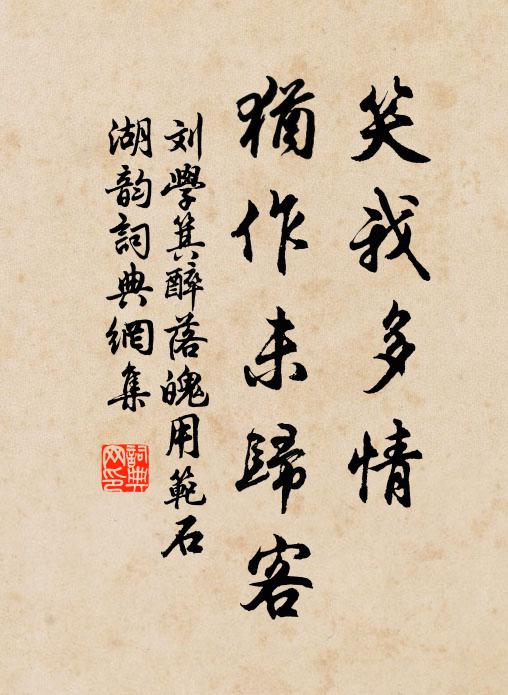 笑我多情
猶作未歸客
刘學箕醉落魄用範石
湖韵詞典網集
詞典网印